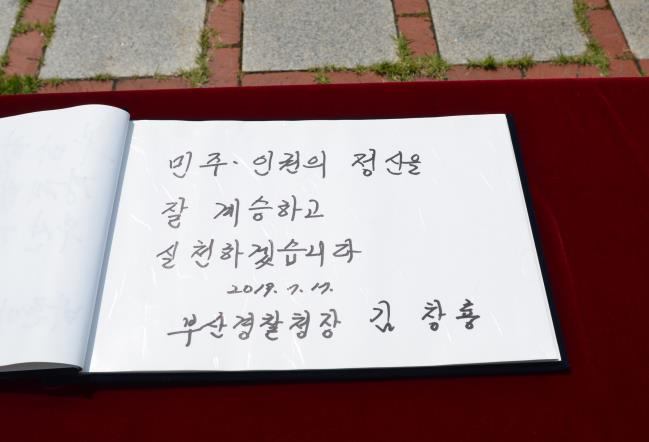 민주·인권의 정신을
잘 계승하고
실천하겠습니다
2019. 7. 17.
부산경찰청장 김 창 룡